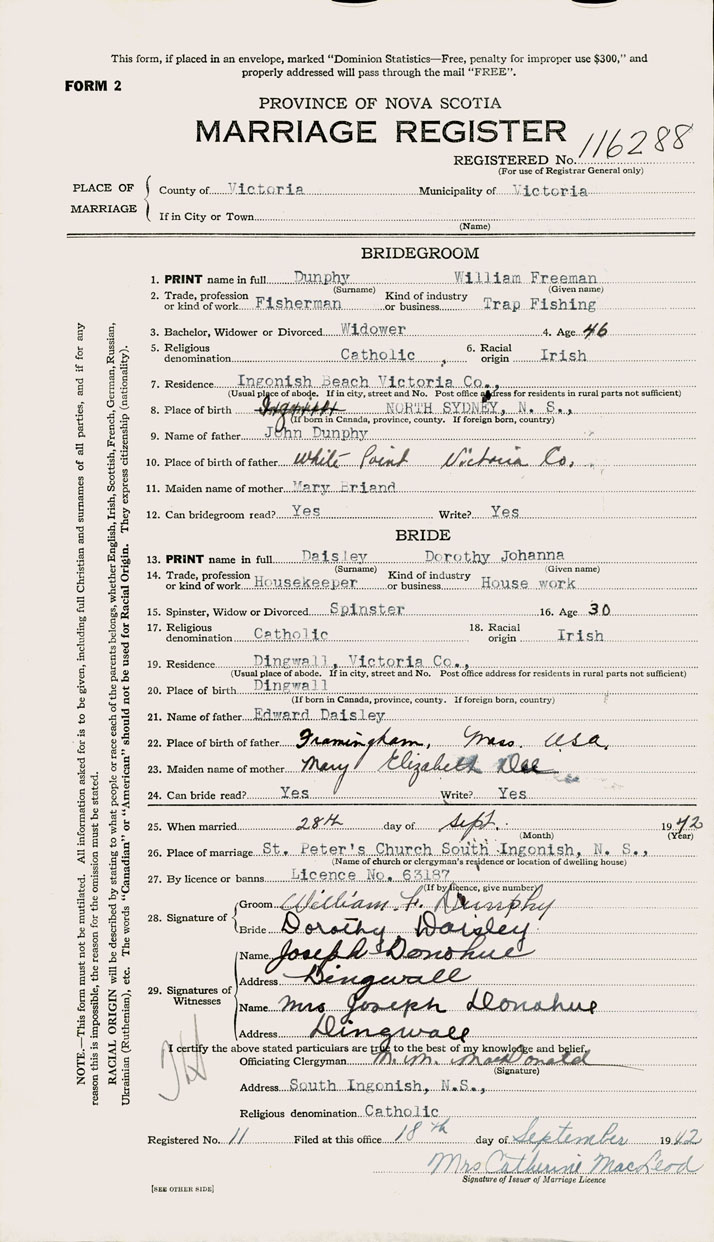 This form, if placed in an envelope, marked "Dominion Statistics—Free, penalty for improper use $300," and
properly addressed will pass through the mail "FREE".
FORM 2
PROVINCE OF NOVA SCOTIA
MARRIAGE REGISTER
REGISTERED No. 116288
(For use of Registrar General only)
PLACE OF MARRIAGE
County of Victoria Municipality of Victoria
If in City or Town
(Name)
BRIDEGROOM
1. PRINT name in full Dunphy William Freeman
(Surname) (Given name)
2. Trade, profession or kind of work Fisherman Kind of industry or business Trap Fishing
3. Bachelor, Widower or Divorced Widower 4. Age 46
5. Religious denomination Catholic, 6. Racial origin Irish
7. Residence Ingonish Beach Victoria Co.,
(Usual place of abode. If in city, street and No. Post office address for residents in rural parts not sufficient)
8. Place of birth NORTH SYDNEY, N. S.,
(If born in Canada, province, county. If foreign born, country)
9. Name of father John Dunphy
10. Place of birth of father White Point Victoria Co.
11. Maiden name of mother Mary Briand
12. Can bridegroom read? Yes Write? Yes
BRIDE
13. PRINT name in full Daisley Dorothy Johanna
(Surname) (Given name)
14. Trade, profession or kind of work Housekeeper Kind of industry or business House work
15. Spinster, Widow or Divorced Spinster 16. Age 30
17. Religious denomination Catholic 18. Racial origin Irish
19. Residence Dingwall, Victoria Co.,
(Usual place of abode. If in city, street and No. Post office address for residents in rural parts not sufficient)
20. Place of birth Dingwall
(If born in Canada, province, county. If foreign born, country)
21. Name of father Edward Daisley
22. Place of birth of father Framingham, Mass. USA.
23. Maiden name of mother Mary Elizabeth Dee
24. Can bride read? Yes Write? Yes
25. When married 28th day of Sept. 1942
(Month) (Year)
26. Place of marriage St. Peter's Church South Ingonish, N. S.,
(Name of church or clergyman's residence or location of dwelling house)
27. By licence or banns Licence No. 63187
(If by licence, give number)
28. Signature of
Groom William F. Dunphy
Bride Dorothy Daisley
29. Signatures of Witnesses
Name Joseph Donohue
Address Dingwall
Name Mrs Joseph Donohue
Address Dingwall
I certify the above stated particulars are true to the best of my knowledge and belief.
Officiating Clergyman M. M. MacDonald
(Signature)
Address South Ingonish, N.S.,
Religious denomination Catholic
Registered No. 11 Filed at this office 18th day of September 1942
Mrs Catherine MacLeod
Signature of Issuer of Marriage Licence
[SEE OTHER SIDE]
NOTE.—This form must not be mutilated. All information asked for is to be given, including full Christian and surnames of all parties, and if for any
reason this is impossible, the reason for the omission must be stated.
RACIAL ORIGIN will be described by stating to what people or race each of the parents belongs, whether English, Irish, Scottish, French, German, Russian,
Ukrainian (Ruthenian), etc. The words "Canadian" or "American" should not be used for Racial Origin. They express citizenship (nationality).